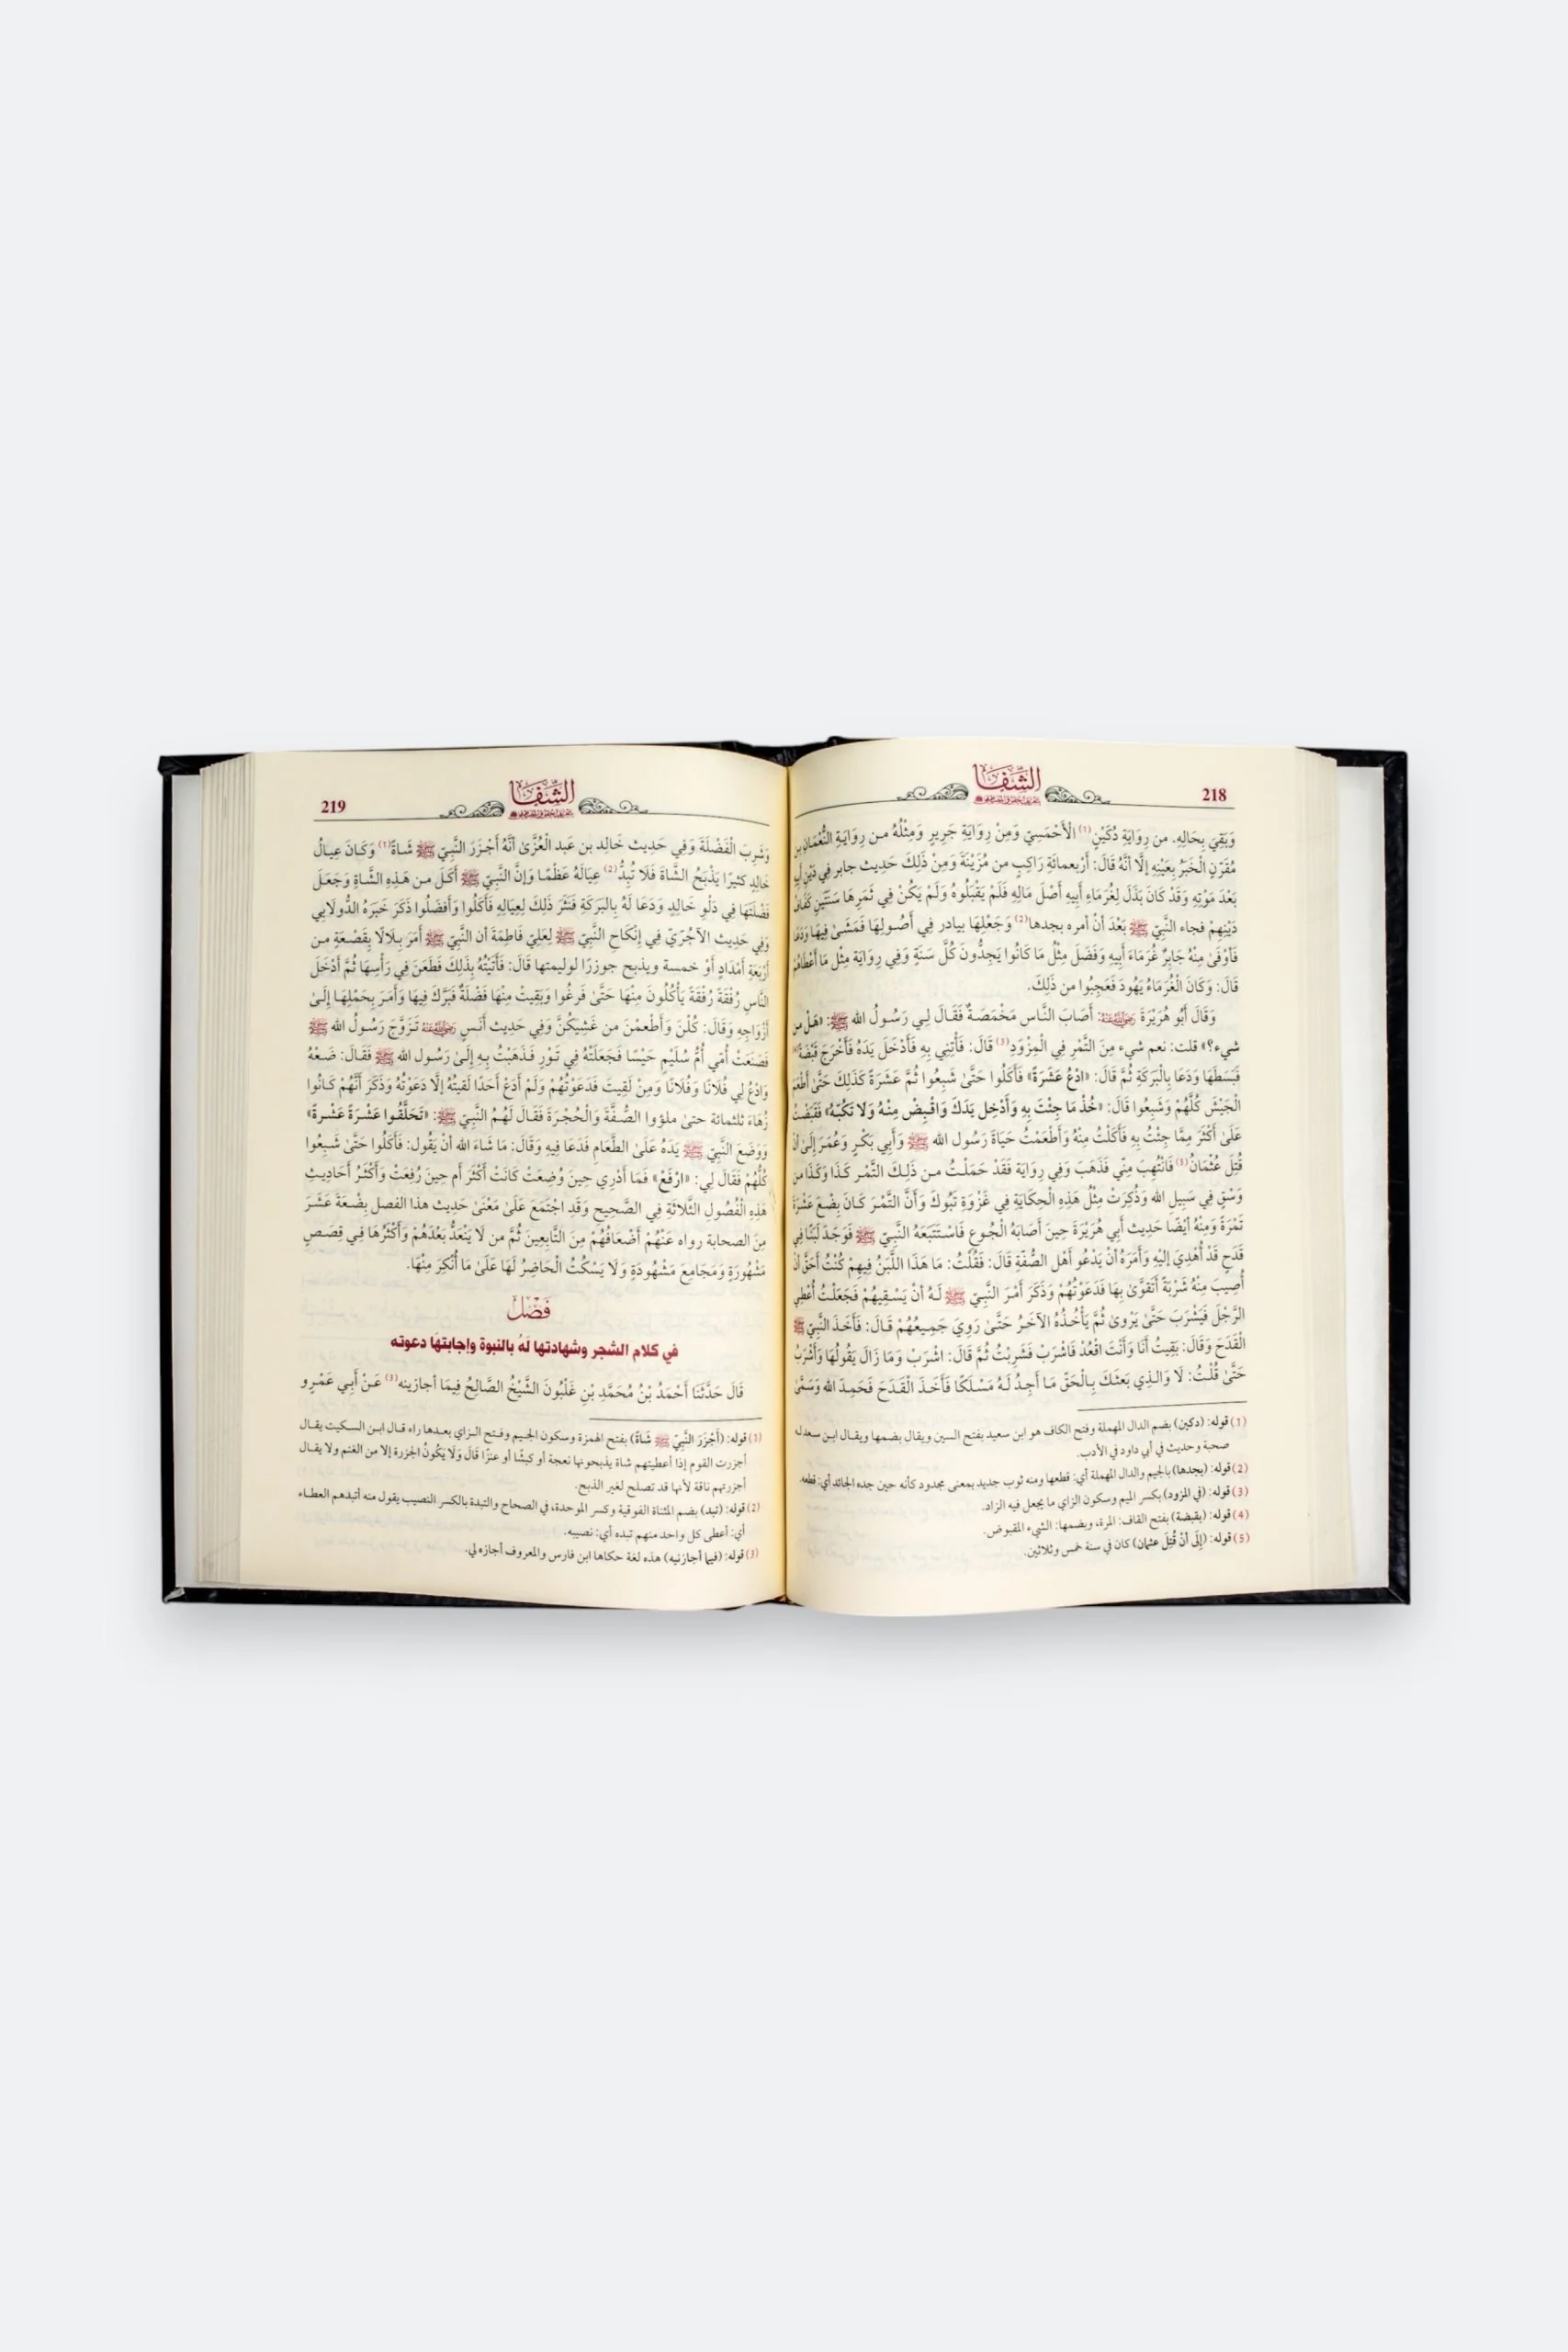 218
الشِّفَا
وَبَقِيَ بِحَالِهِ. من رِوَايَةِ دُكَيْنٍ(1) الْأَحْمَسِيّ وَمِنْ رِوَايَةِ جَرِيرٍ وَمِثْلُهُ مـن رِوَايَـةِ النُّعْمَانِ بن
مُقَرِّنٍ الْخَبَرُ بِعَيْنِهِ إِلَّا أَنَّهُ قَالَ: أَرْبعمائَةِ رَاكِبٍ من مُزَيْنَةَ وَمِنْ ذَلِكَ حَدِيث جابر فِي دَيْنِ
بَعْدَ مَوْتِهِ وَقَدْ كَانَ بَذَلَ لِغُرَمَاءِ أَبِيهِ أَصْلَ مَالِهِ فَلَمْ يَقْبَلُوهُ وَلَمْ يَكُنْ فِي ثَمَرِهَا سَنَتَيْنِ كَفَافُ
دَيْنِهِمْ فجاء النَّبِيّ ﷺ بَعْدَ أنْ أمره بجدها(2) وَجَعْلِهَا بيادر فِي أُصُـولِهَا فَمَشَىٰ فِيهَا وَدَعَا
فَأَوْفَىٰ مِنْهُ جَابِرٌ غُرَمَاءَ أَبِيهِ وَفَضَلَ مِثْلُ مَا كَانُوا يَجِدُّونَ كُلَّ سَنَةٍ وَفِي رِوَايَة مِثْل مَا أَعْطَاهُمْ
قَالَ: وَكَانَ الْغُرَمَاءُ يَهُودَ فَعَجِبُوا من ذَلِكَ.
وَقَالَ أَبُو هُرَيْرَةَ رَضِيَ اللَّهُ عَنْهُ: أَصَابَ النَّاس مَخْمَصَـةٌ فَقَـالَ لِـي رَسُـولُ الله ﷺ: «هَـلْ من
شيء؟» قلت: نعم شيء مِنَ التَّمْرِ فِي الْمِزْوَدِ(3) قَالَ: فَأْتِنِي بِهِ فَأَدْخَلَ يَدَهُ فَأَخْرَجَ قَبْضَةً(4)
فَبَسَطَهَا وَدَعَا بِالْبَرَكَةِ ثُمَّ قَالَ: «ادْعُ عَشَرَةً» فَأَكَلُوا حَتَّىٰ شَبِعُوا ثُمَّ عَشَرَةً كَذَلِكَ حَتَّىٰ أَطْعَمَ
الْجَيْشَ كُلَّهُمْ وَشَبِعُوا قَالَ: «خُذْ مَا جِئْتَ بِهِ وَأَدْخِل يَدَكَ وَاقْـبِضْ مِنْـهُ وَلَا تَكُبّـهُ» فَقَبَضْتُ
عَلَىٰ أَكْثَرَ مِمَّا جِئْتُ بِهِ فَأَكَلْتُ مِنْهُ وَأَطْعَمْتُ حَيَاةَ رَسُول الله ﷺ وَأَبِي بَكْرٍ وَعُمَرَ إِلَىٰ أَنْ
قُتِلَ عُثْمَانُ(5) فَانْتُهِبَ مِنِّي فَذَهَبَ وَفِي رِوَايَة فَقَدْ حَمَلْـتُ مـن ذَلِـكَ التَّمْـر كَـذَا وَكَـذَا من
وَسْقٍ فِي سَبِيلِ الله وَذُكِرَتْ مِثْلُ هَذِهِ الْحِكَايَةِ فِي غَزْوَةِ تَبُوكَ وَأَنَّ التَّمْرَ كَـانَ بِضْعَ عَشْرَةَ
تَمْرَةً وَمِنْهُ أَيْضًا حَدِيث أَبِي هُرَيْرَةَ حِينَ أَصَابَهُ الْجُـوع فَاسْـتَتْبَعَهُ النَّبـيّ ﷺ فَوَجَـدَ لَبَنًا فِي
قَدَحٍ قَدْ أُهْدِيَ إِلَيْهِ وَأَمَرَهُ أنْ يَدْعُو أَهْل الصُّفّةِ قَالَ: فَقُلْتُ: مَا هَذَا اللَّبَنُ فِيهِمْ كُنْتُ أَحَقَّ أَنْ
أُصِيبَ مِنْهُ شَرْبَةً أَتَقَوَّىٰ بِهَا فَدَعَوْتُهُمْ وَذَكَرَ أَمْرَ النَّبِيّ ﷺ لَـهُ أنْ يَسْـقِيهُمْ فَجَعَلْتُ أُعْطِي
الرَّجُلَ فَيَشْرَبَ حَتَّىٰ يَرْوىٰ ثُمَّ يَأْخُـذُهُ الآخَـرُ حَتَّـىٰ رَوِيَ جَمِـيعُهُمْ قَـالَ: فَأَخَـذَ النَّبِيّ ﷺ
الْقَدَحَ وَقَالَ: بَقِيتُ أَنَا وَأَنْتَ اقْعُدْ فَاشْرَبْ فَشَرِبْتُ ثُمَّ قَالَ: اشْرَبْ وَمَا زَالَ يَقُولُهَا وَأَشْرَبُ
حَتَّىٰ قُلْتُ: لَا وَالـذِي بَعثَـكَ بِـالْحَقّ مَـا أَجِـدُ لَـهُ مَسْـلَكًا فَأَخَـذَ الْقَـدَحَ فَحَمِـدَ الله وَسَمَّىٰ
(1) قوله: (دكين) بضم الدال المهملة وفتح الكاف هو ابن سعيد بفتح السين ويقال بضمها ويقـال ابـن سعد له
صحبة وحديث في أبي داود في الأدب.
(2) قوله: (بجدها) بالجيم والدال المهملة أي: قطعها ومنه ثوب جديد بمعنى مجدود كأنه حين جده الحائد أي: قطعه.
(3) قوله: (في المزود) بكسر الميم وسكون الزاي ما يجعل فيه الزاد.
(4) قوله: (بقبضة) بفتح القاف: المرة، وبضمها: الشيء المقبوض.
(5) قوله: (إِلَى أنْ قُتِلَ عثمان) كان في سنة خمس وثلاثين.
219
الشِّفَا
وَشَرِبَ الْفَضْلَةَ وَفِي حَدِيث خَالِد بن عَبد الْعُزَّىٰ أنَّهُ أَجْزَرَ النَّبِيّ ﷺ شَـاةً(1) وَكَـانَ عِيـالُ
خَالِدٍ كثيرًا يَذْبَحُ الشَّاةَ فَلَا تُبِدُّ(2) عِيَالَهُ عَظْمًا وَإِنَّ النَّبِيّ ﷺ أَكَـلَ مـن هَـذِهِ الشَّـاةِ وَجَعَـلَ
فَضْلَتَهَا فِي دَلْوِ خَالِدٍ وَدَعَا لَهُ بِالبَرَكَةِ فَنَثَرَ ذَلِكَ لِعِيَالِهِ فَأَكَلُوا وَأَفضَلُوا ذَكَرَ خَبَرَهُ الدُّولَابِي
وَفِي حَدِيث الآجُرّيّ فِي إِنْكَاحِ النَّبِيّ ﷺ لِعَلِيّ فَاطِمَةَ أن النَّبِيّ ﷺ أَمَرَ بِـلَالًا بِقَصْـعَةٍ مـن
أَرْبَعَةِ أَمْدَادٍ أَوْ خمسة ويذبح جوزرًا لوليمتها قَالَ: فَأَتَيْتُهُ بِذَلِكَ فَطَعَنَ فِي رَأْسِهَا ثُمَّ أَدْخَلَ
النَّاسِ رُفْقَةً رُفْقَةً يَأْكُلُونَ مِنْهَا حَتَّىٰ فَرغُوا وَبَقِيتْ مِنْهَا فَضْلَةٌ فَبَرَّكَ فِيهَا وَأَمَـرَ بِحَمْلِهَـا إِلَـىٰ
أَزْوَاجِهِ وَقَالَ: كُلْنَ وَأَطْعمْنَ من غَشِيَكُنَّ وَفِي حَدِيث أَنَـسٍ رَضِيَ اللَّهُ عَنْهُ تَـزَوَّجَ رَسُـولُ الله ﷺ
فَصَنَعَتْ أُمّي أُمُّ سُلَيْمٍ حَيْسًا فَجَعَلَتْهُ فِي تَوْرٍ فَـذَهَبْتُ بِـهِ إِلَىٰ رَسُـول الله ﷺ فَقَـالَ: ضَـعْهُ
وَادْعُ لِي فُلَانًا وَفُلَانًا وَمِنْ لَقِيتَ فَدَعَوْتُهُمْ وَلَمْ أَدَعْ أَحَدًا لَقيتُهُ إِلَّا دَعَوْتُهُ وَذَكَرَ أَنَّهُمْ كَـانُوا
زُهَاءَ ثلثمائة حتىٰ ملؤوا الصُّـفَّةَ وَالْحُجْـرَةَ فَقَـالَ لَهُـمُ النَّبِيّ ﷺ: «تَحَلَّقُـوا عَشْـرَةً عَشْـرةً»
وَوَضَعَ النَّبِيّ ﷺ يَدَهُ عَلَىٰ الطَّعَامِ فَدَعَا فِيهِ وَقَالَ: مَا شَاءَ الله أنْ يَقُول: فَأَكَلُوا حَتَّىٰ شَـبِعُوا
كُلُّهُمْ فَقَالَ لِي: «ارْفَعْ» فَمَا أَدْرِي حِينَ وُضِعَتْ كَانَتْ أَكْثَرَ أم حِينَ رُفِعَتْ وَأَكْثَـرُ أَحَادِيـثِ
هَذِهِ الْفُصُولِ الثَّلاثَةِ فِي الصَّحِيحِ وَقَدِ اجْتَمَعَ عَلَىٰ مَعْنَىٰ حَدِيث هذا الفصل بِضْعَةَ عَشَرَ
مِنَ الصحابة رواه عَنْهُمْ أَضْعَافُهُمْ مِنَ التَّابِعِينَ ثُمَّ من لَا يَنْعَدُّ بَعْدَهُمْ وَأَكْثَرُهَا فِـي قِصَـصٍ
مَشْهُورَةٍ وَمَجَامِعَ مَشْهُودَةٍ وَلَا يَسْكُتُ الْحَاضِرُ لَهَا عَلَىٰ مَا أُنْكِرَ مِنْهَا.
فَضْلٌ
في كلام الشجر وشهادتها لهُ بالنبوة وإجابتها دعوته
قَالَ حَدَّثَنَا أَحْمَدُ بْنُ مُحَمَّدِ بْنِ غَلْبُونَ الشَّيْخُ الصَّالِحُ فِيمَا أجازينه(3) عَـنْ أَبِـي عَمْـرٍو
(1) قوله: (أَجْزَرَ النَّبِيّ ﷺ شَاةً) بفتح الهمزة وسكون الجـيم وفتـح الـزاي بعـدها راء قـال ابـن السـكيت يقـال
أجزرت القوم إذا أعطيتهم شاة يذبحونها نعجة أو كبشًا أو عنزًا قَالَ وَلَا يَكُونُ الجزرة إلا من الغنم ولا يقـال
أجزرتهم ناقة لأنها قد تصلح لغير الذبح.
(2) قوله: (تبد) بضم المثناة الفوقية وكسر الموحدة، في الصحاح والتبدة بالكسر النصيب يقول منه أتبدهم العطـاء
أي: أعطى كل واحد منهم تبده أي: نصيبه.
(3) قوله: (فيما أجازنيه) هذه لغة حكاها ابن فارس والمعروف أجازه لي.